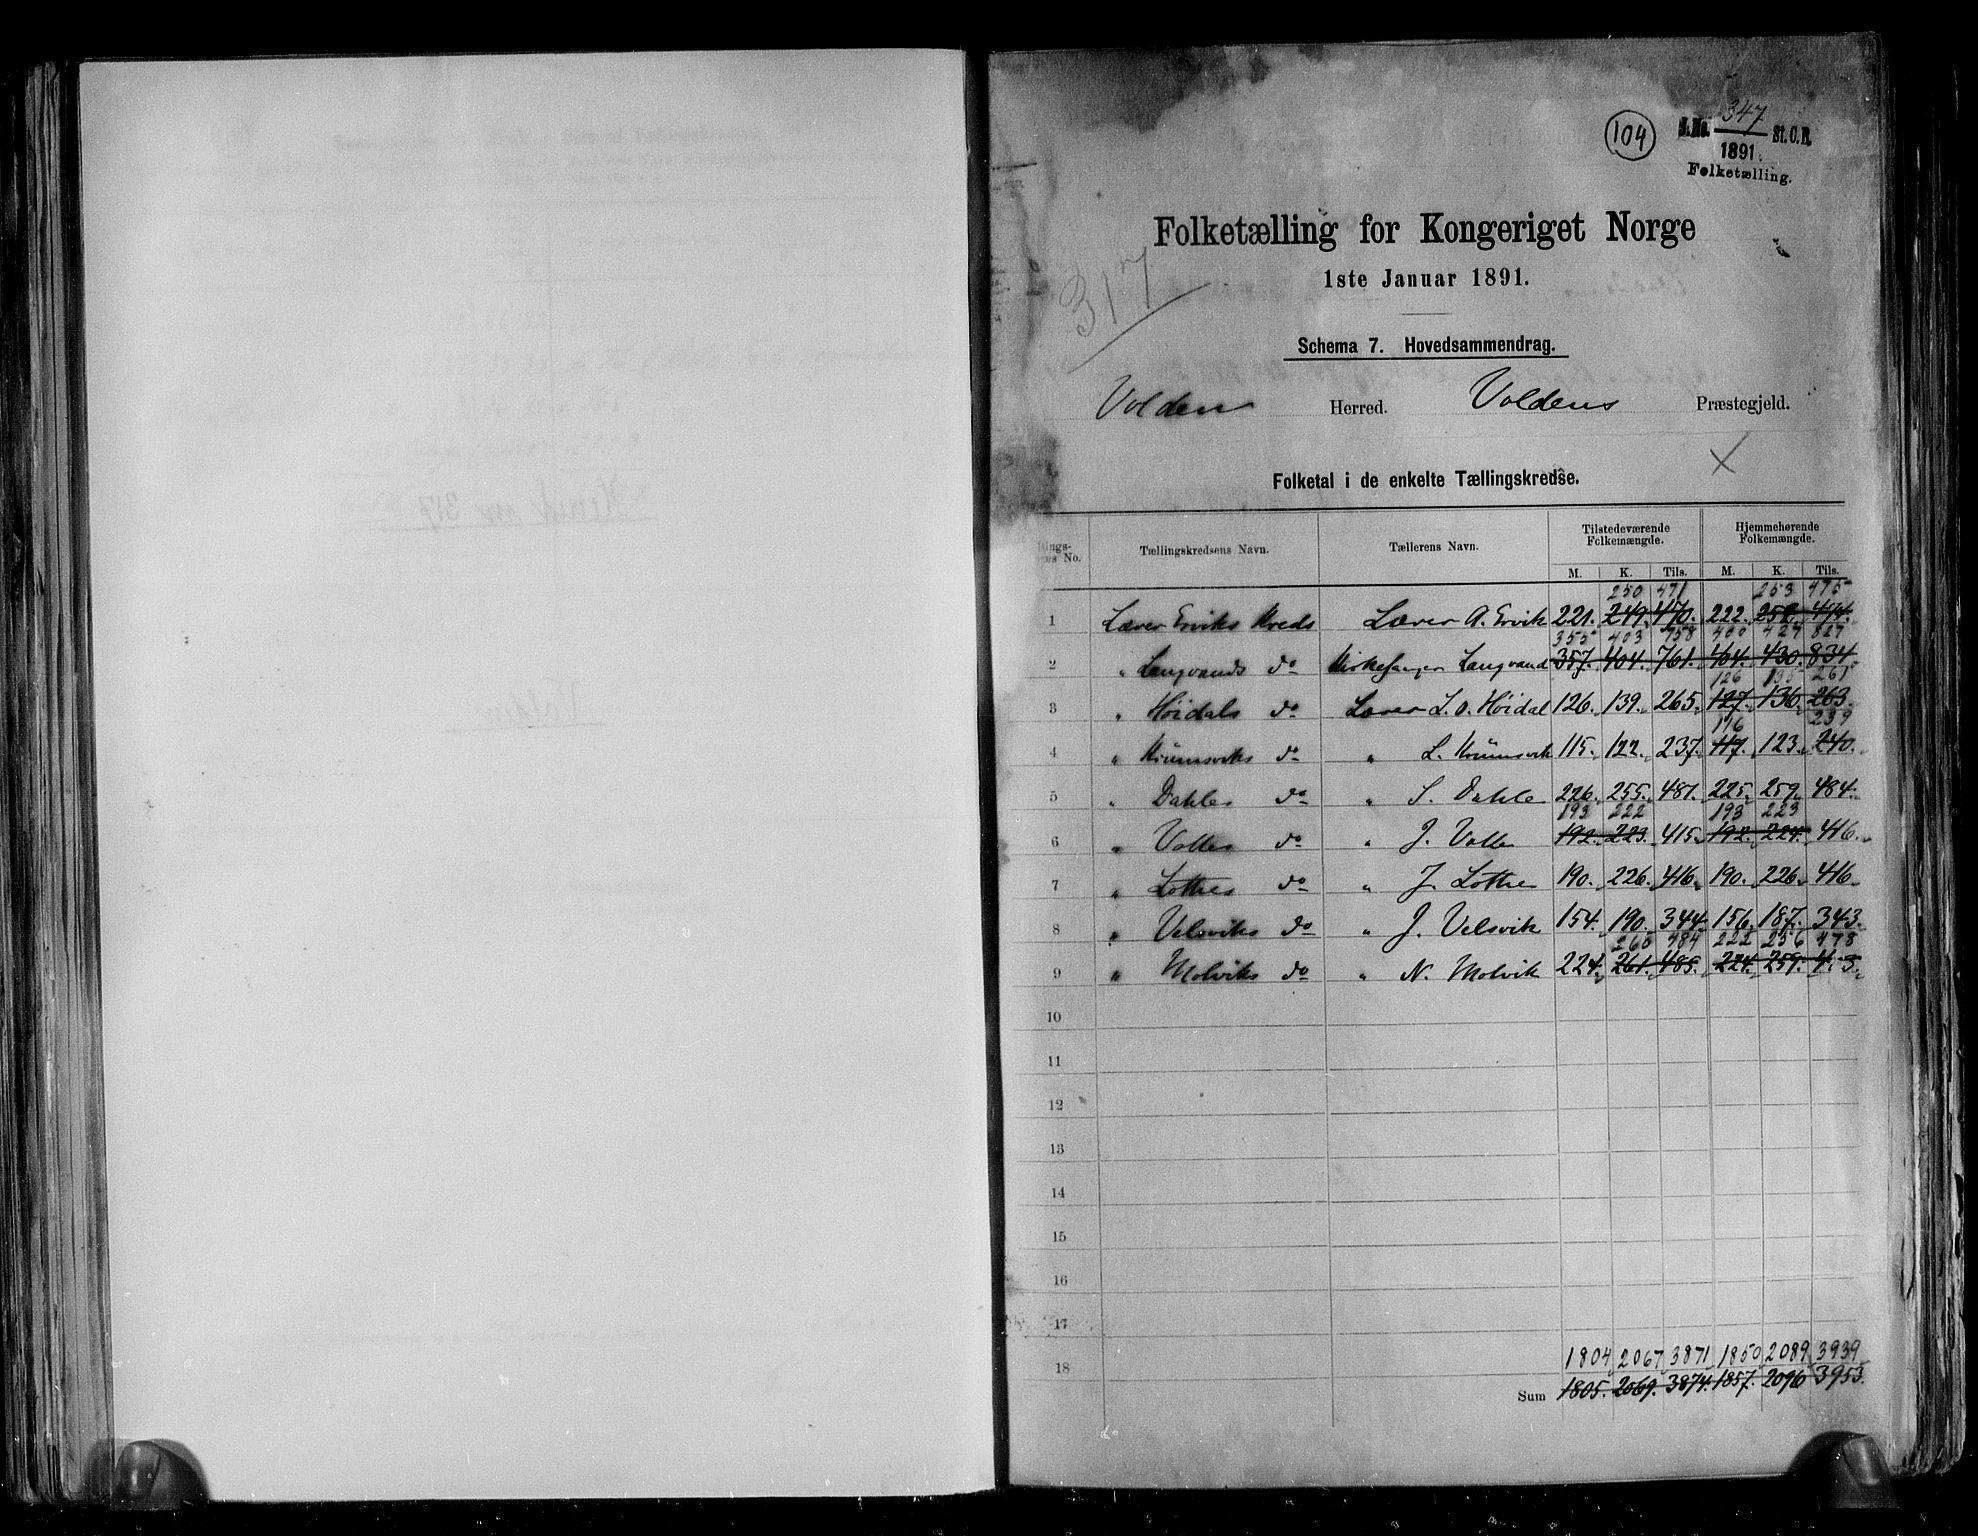 104
J.No. 347 St.C.B.
1891.
Folketælling.
Folketælling for Kongeriget Norge
1ste Januar 1891.
317
Schema 7. Hovedsammendrag.
Volden Herred. Voldens Præstegjeld.
X
Folketal i de enkelte Tællingskredse.
Tællingskredsens Navn. Tællerens Navn. Tilstedeværende Folkemængde. Hjemmehørende Folkemængde.
M. K. Tils. M. K. Tils.
250 471 253 475
1 Lærer Erviks Kreds Lærer A. Ervik 221. 249. 470. 222. 252. 474.
355 403 758 400 427 827
2 " Langvands do Kirkesanger Langvand 357. 404. 761. 404. 430. 834.
126 135 261
3 " Høidals do Lærer L. O. Høidal 126. 139. 265. 127. 136. 263.
116 239
4 " Krumsviks do " L. Krumsvik 115. 122. 237. 117. 123. 240.
5 " Dahles do " S. Dahle 226. 255. 481. 225. 259. 484.
193 222 193 223
6 " Vattes do " J. Vatte 192. 223. 415. 192. 224. 416.
7 " Lothes do " J. Lothe 190. 226. 416. 190. 226. 416.
8 " Velsviks do " J. Velsvik 154. 190. 344. 156. 187. 343.
260 484 222 256 478
9 " Molviks do " N. Molvik 224. 261. 485. 224. 259.
10
11
12
13
14
15
16
17
1804 2067 3871 1850 2089 3939
18
Sum 1805. 2069. 3874. 1857. 2096 3953.